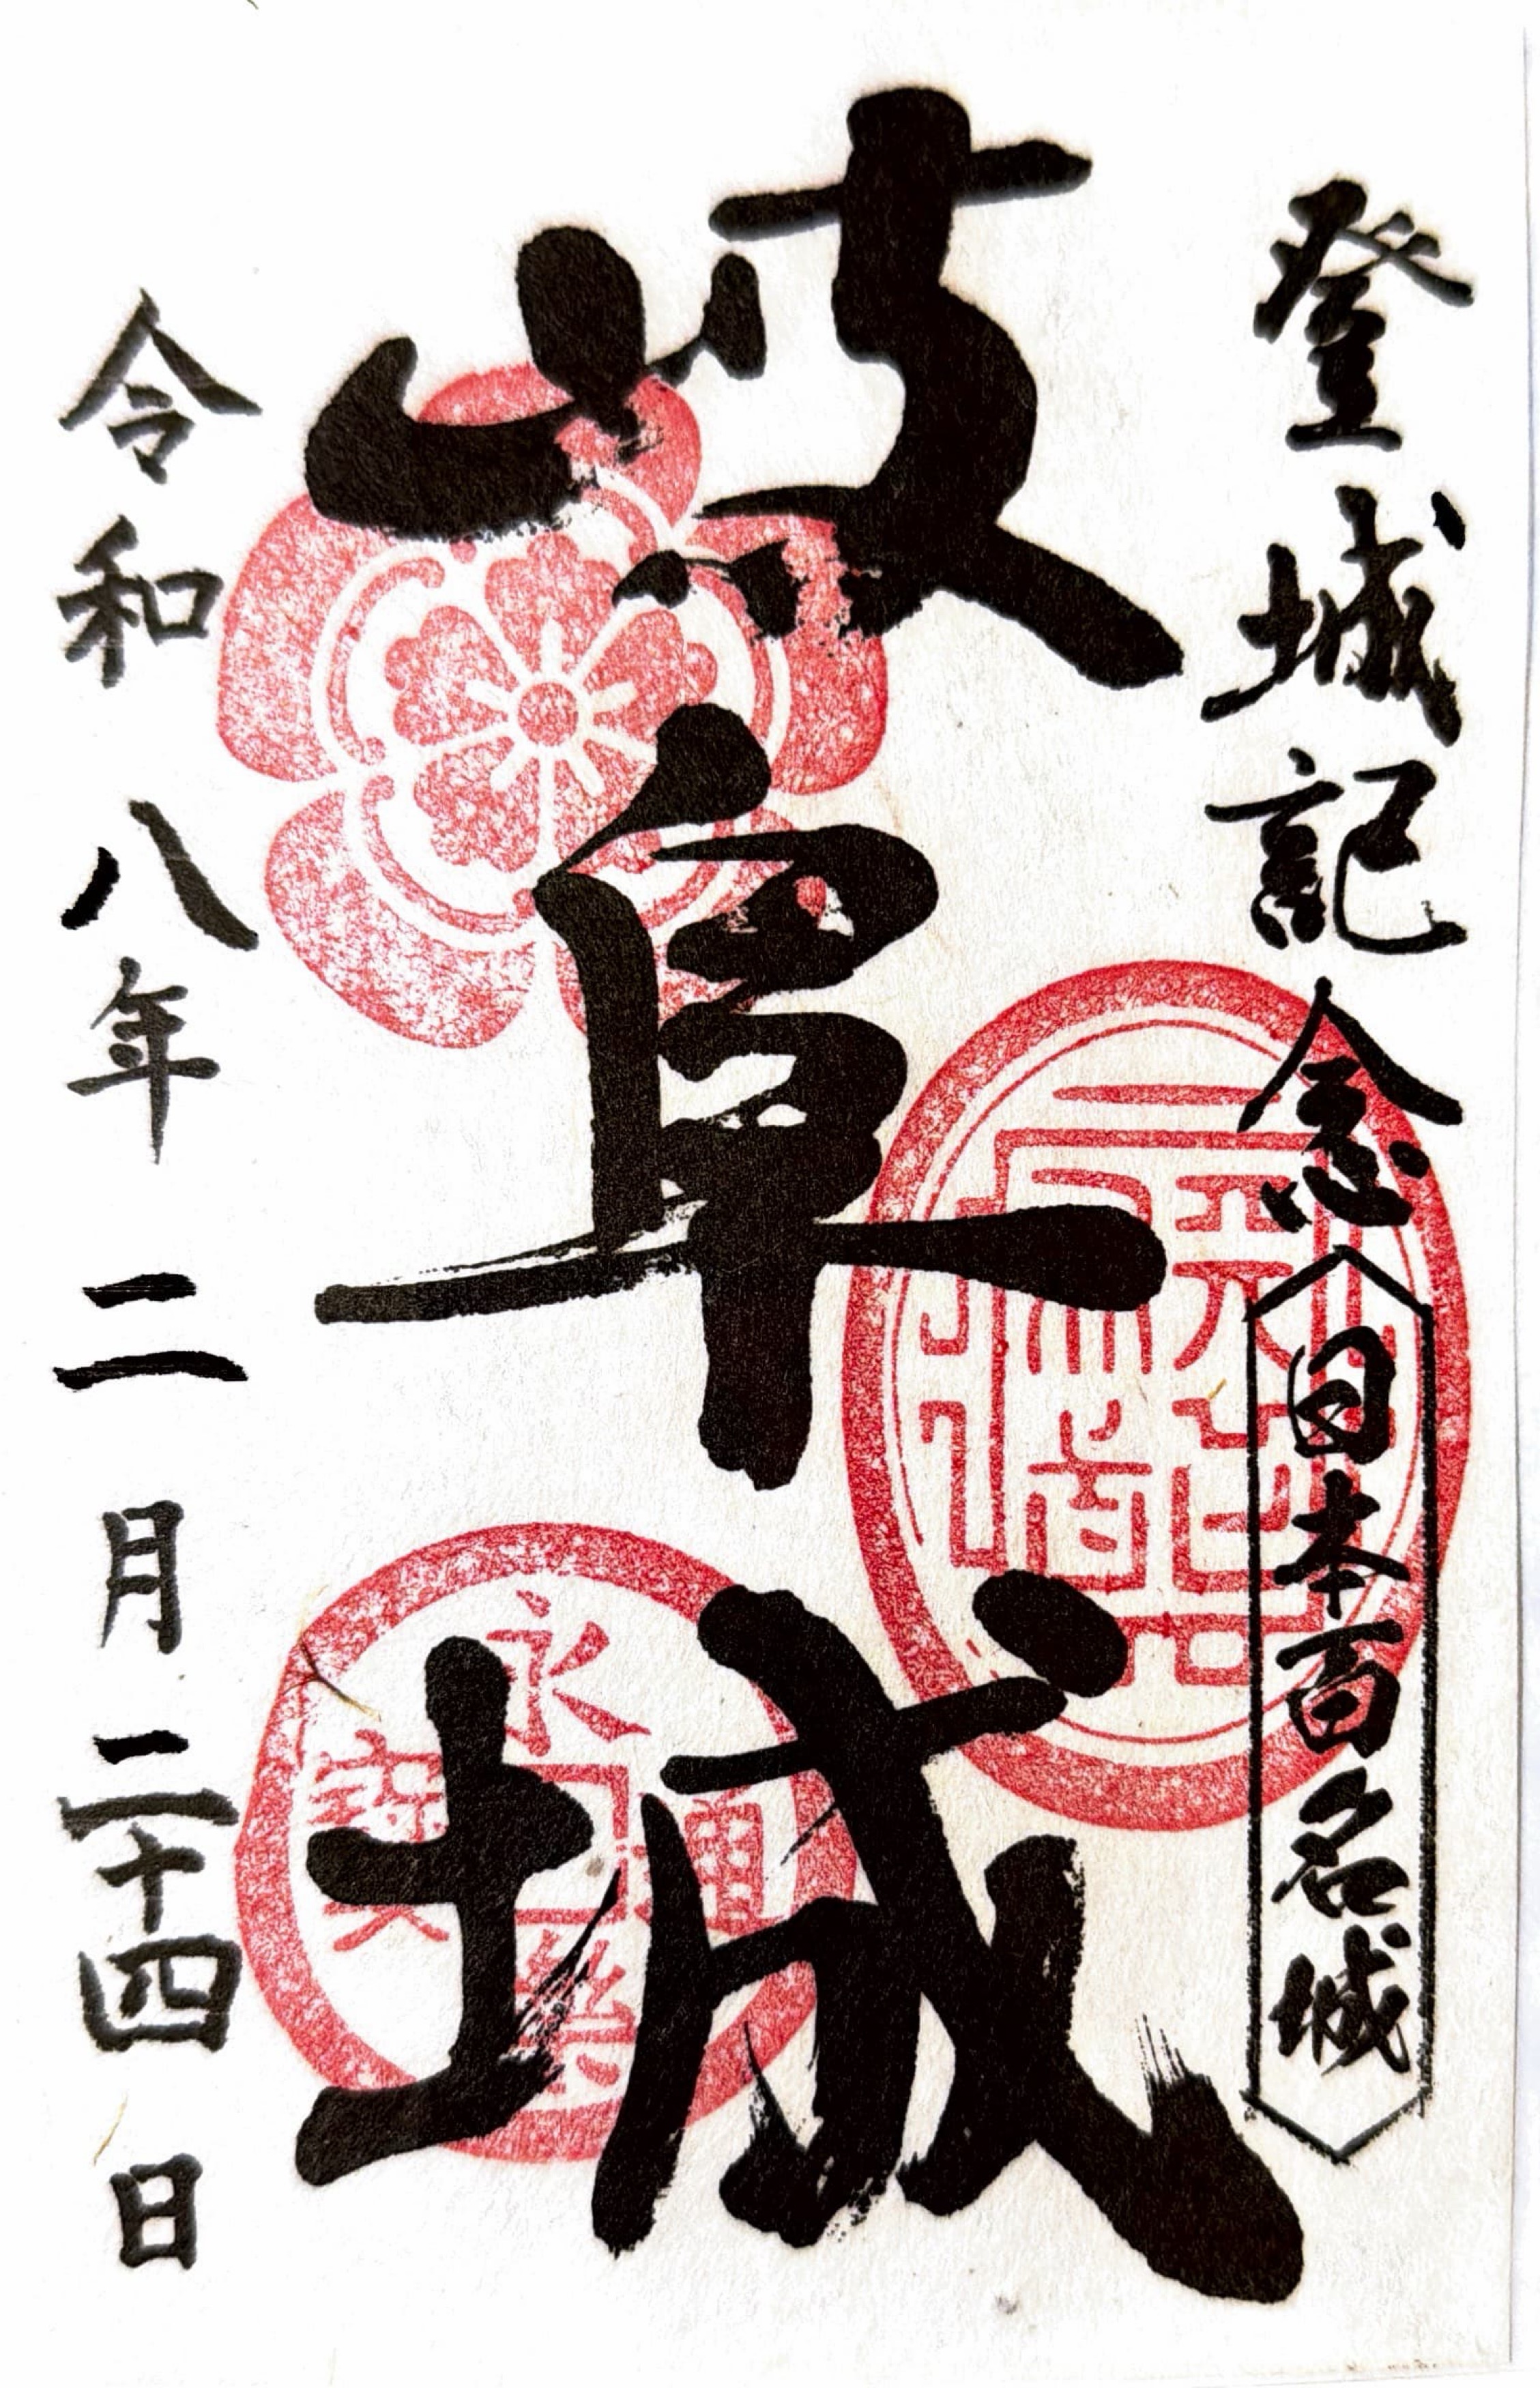 登城記念
日本百名城
岐阜城
令和八年二月二十四日
天下布武
永樂通寳